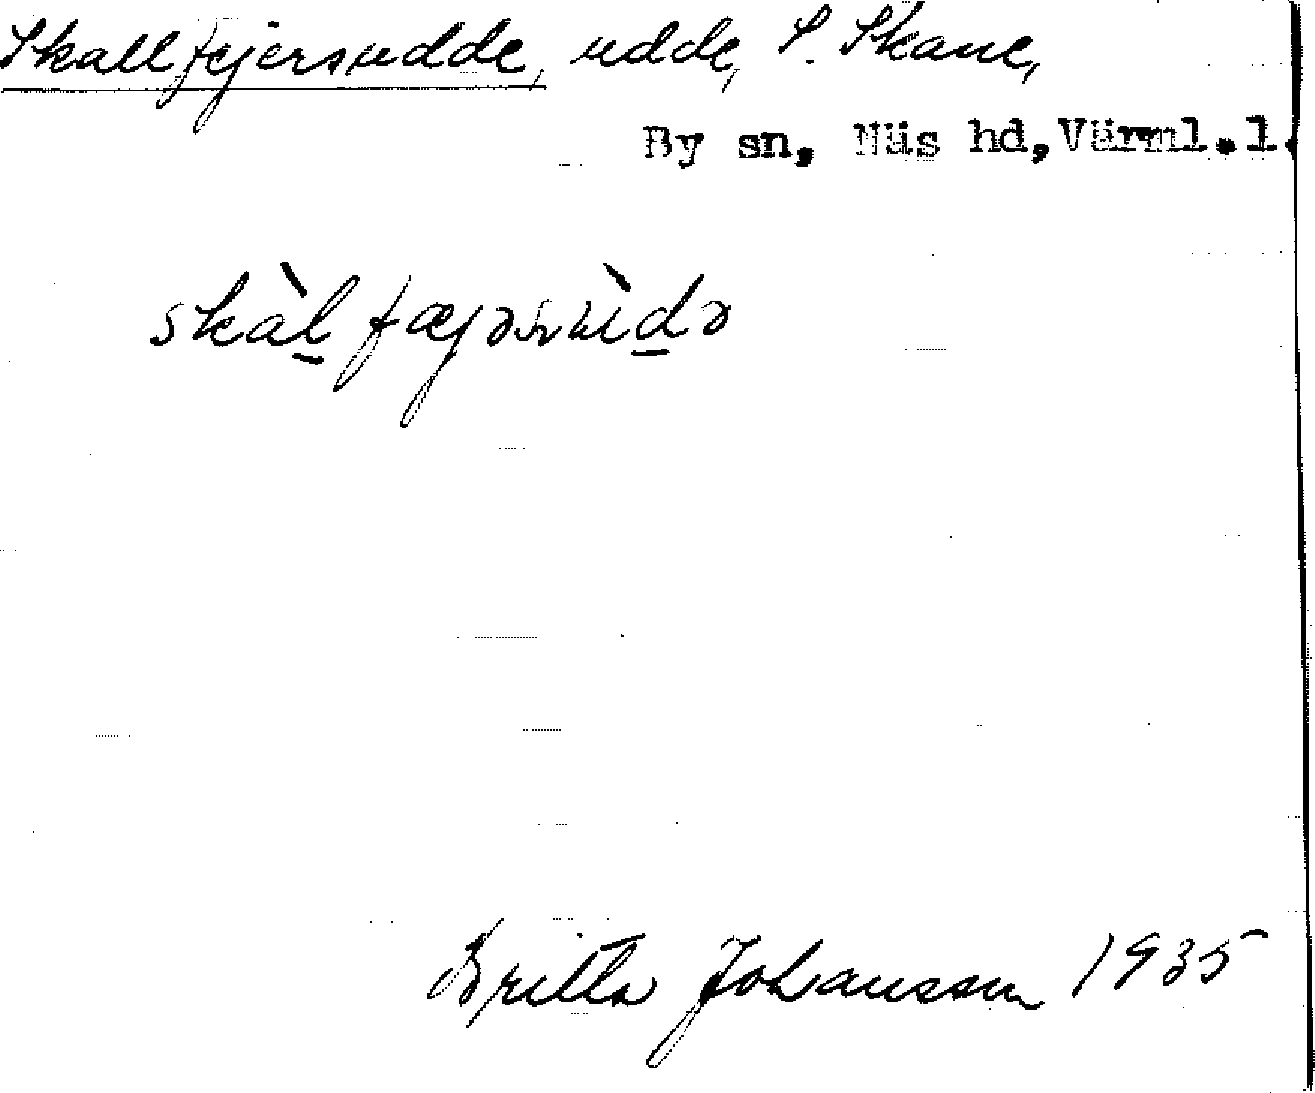 Skallfejersudde, udde, S. Skane,
By sn, Näs hd, Värml.l.
Britta Johansson 1935